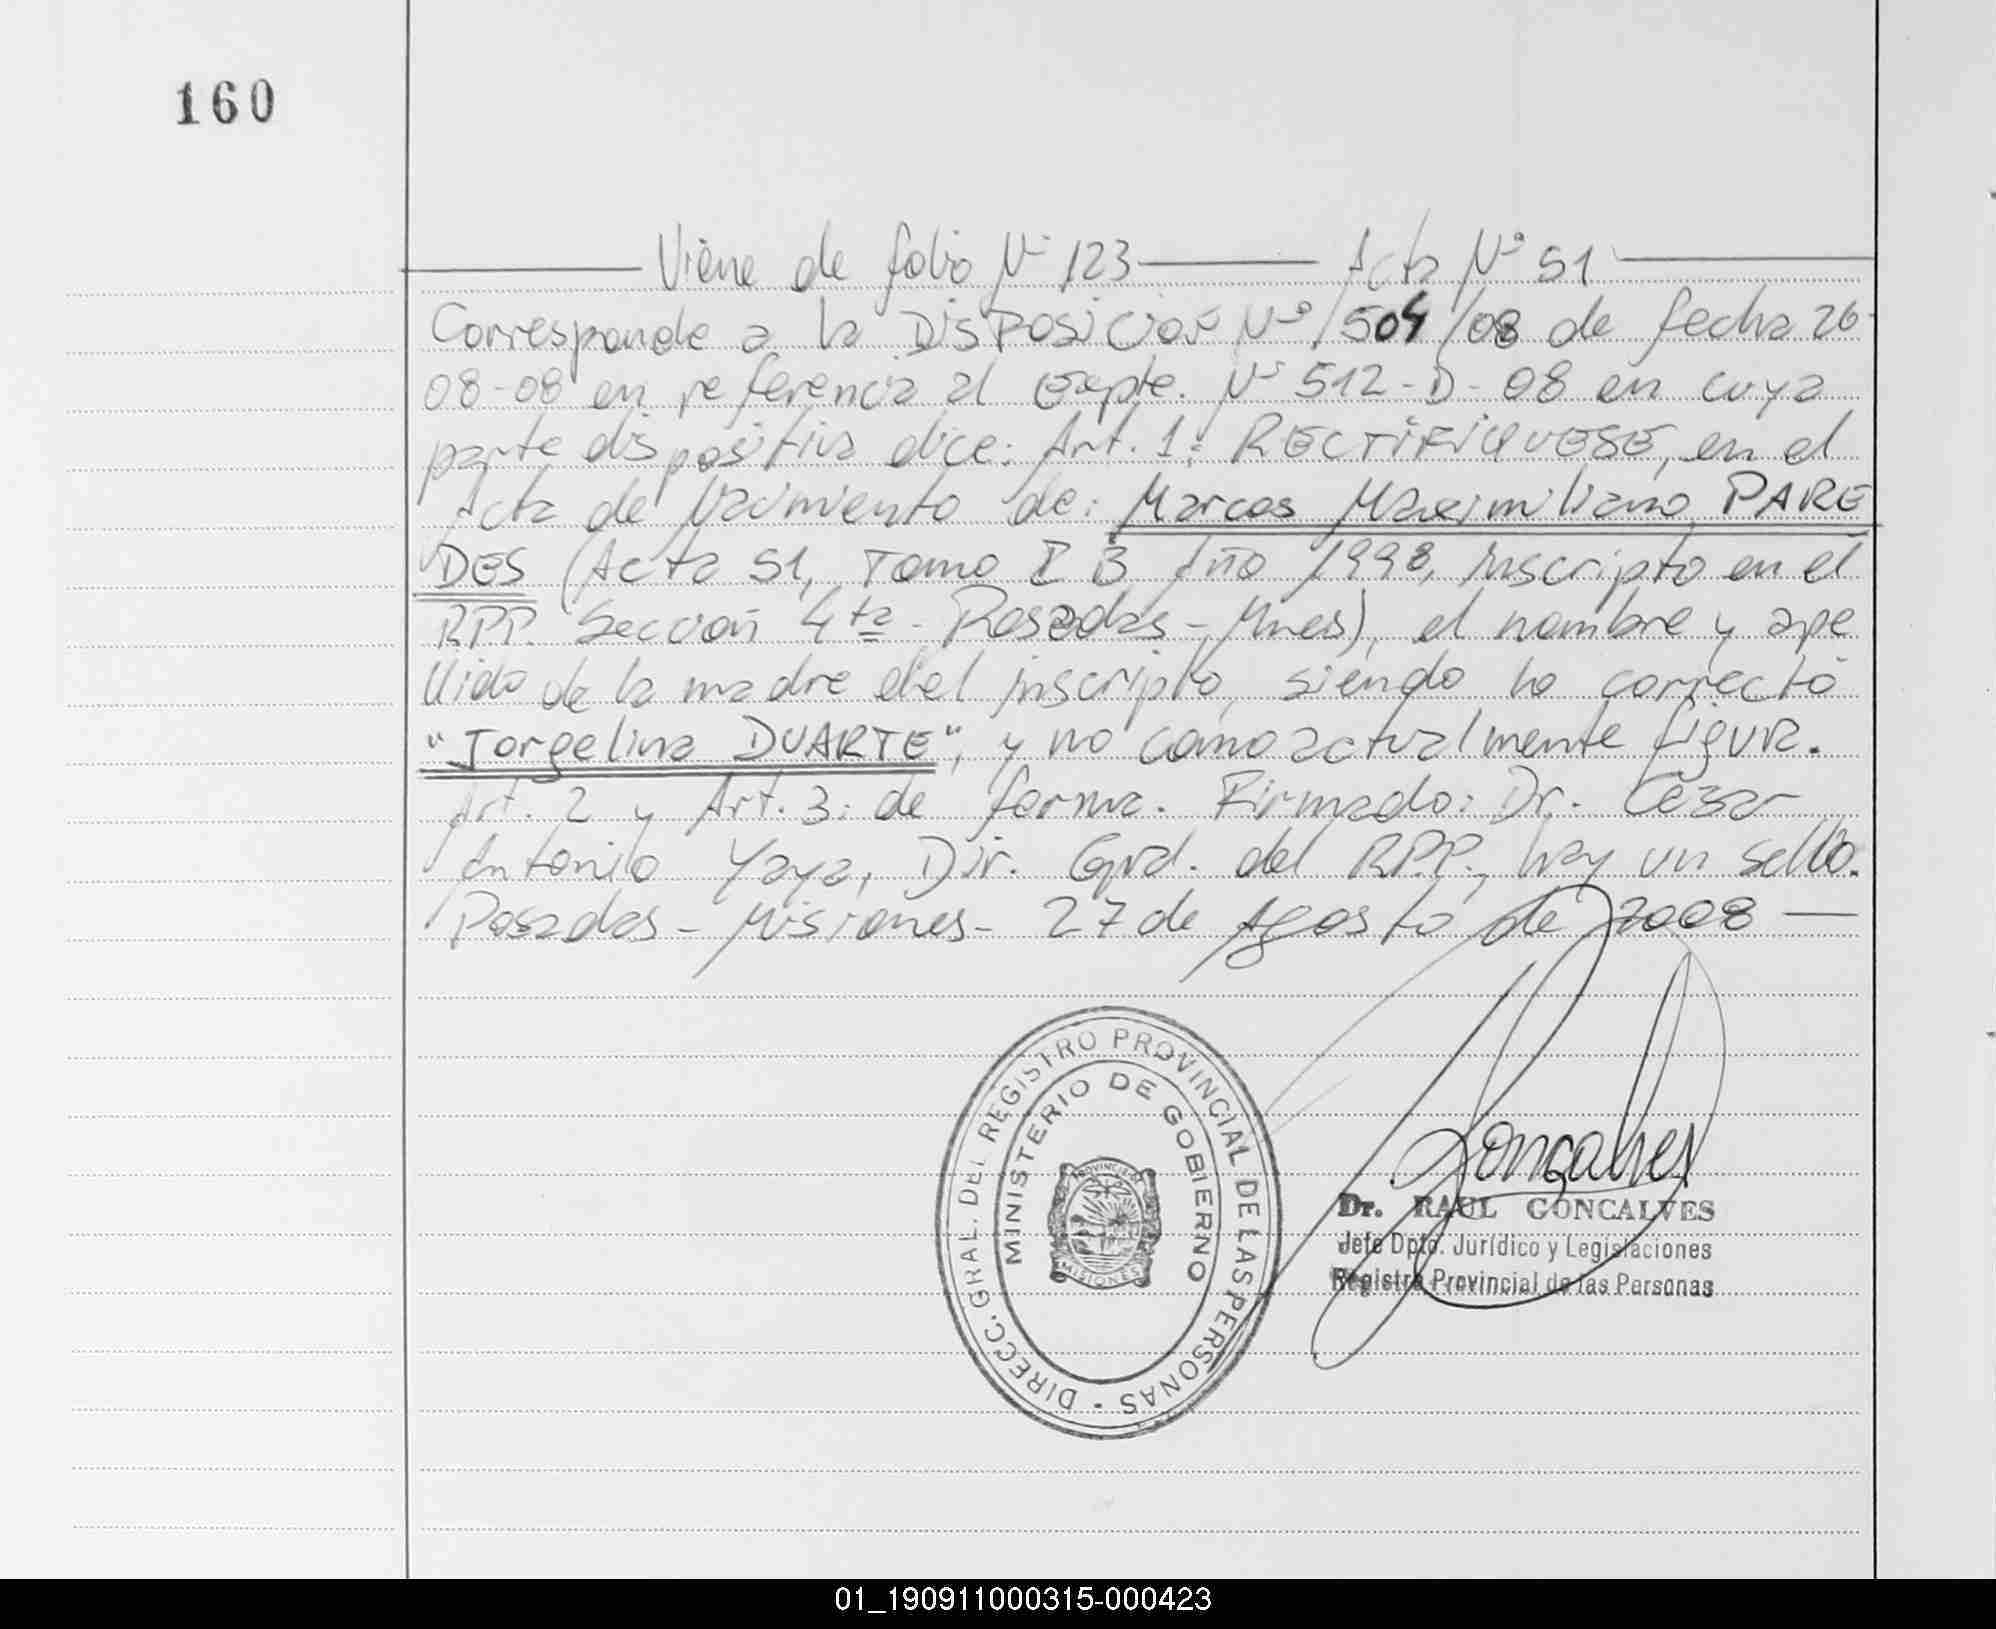 160
Viene de folio Nº 123 — Acta Nº 51 —
Corresponde a la DISPOSICION Nº 1504/08 de fecha 26-
08-08 en referencia al Expte. Nº 512-D-08 en cuya
parte dispositiva dice: Art. 1: RECTIFIQUESE, en el
Acta de Nacimiento de: Marcos Maximiliano PARE
DES (Acta 51, Tomo I B Año 1998, Inscripto en el
RPP. Sección 4ta - Posadas - Mnes), el nombre y ape
llido de la madre del inscripto, siendo lo correcto
"Jorgelina DUARTE", y no como actualmente figura.
Art. 2 y Art. 3: de forma. Firmado: Dr. Cesar
Antonio Yaya, Dir. Gral. del RPP., hay un sello.
Posadas - Misiones - 27 de Agosto de 2008 —
DIRECC. GRAL. DEL REGISTRO PROVINCIAL DE LAS PERSONAS -
MINISTERIO DE GOBIERNO
MISIONES
Goncalves
Dr. RAUL GONCALVES
Jefe Dpto. Jurídico y Legislaciones
Registro Provincial de las Personas
01_190911000315-000423